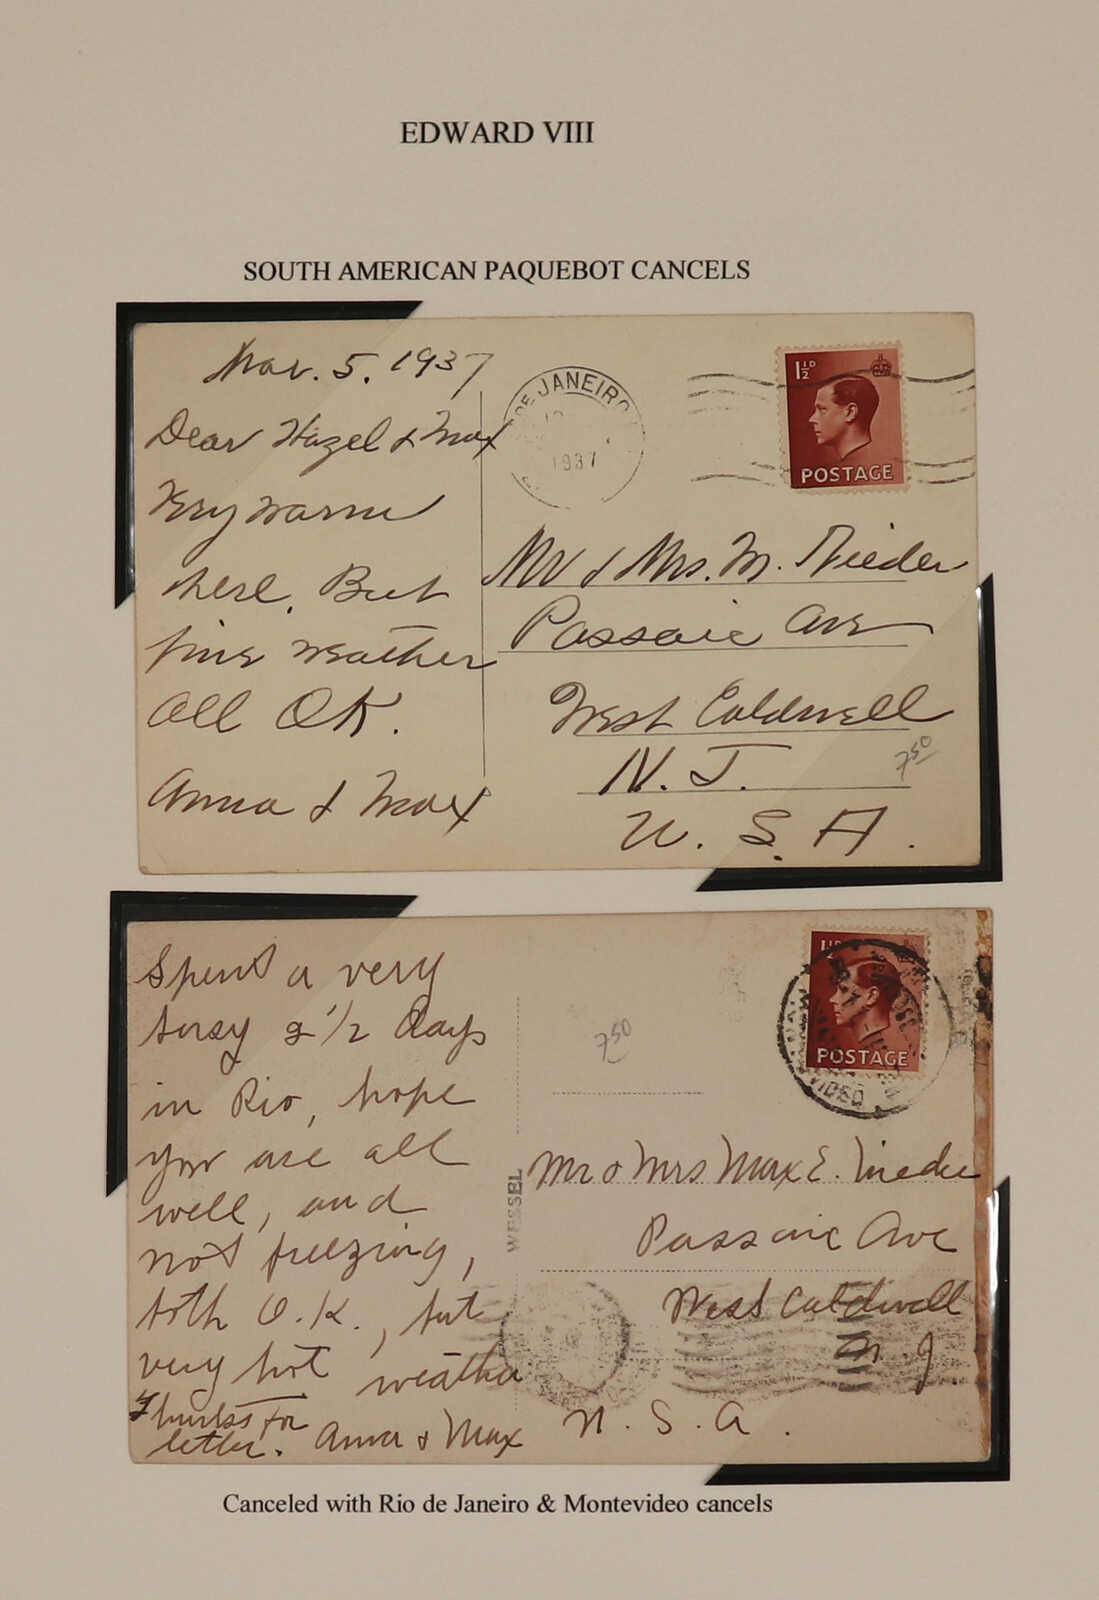 EDWARD VIII
SOUTH AMERICAN PAQUEBOT CANCELS
Mar. 5. 1937
Dear Hazel & Max
Very warm
here. But
fine weather
all OK.
Anna & Max
DE JANEIRO
1937
1½D
POSTAGE
Mr & Mrs. M. Nieder
Passaic Ave
West Caldwell
N. J.
U. S. A.
7.50
Spent a very
busy 2 1/2 days
in Rio, hope
you are all
well, and
not freezing,
both O.K., but
very hot weather
Thanks for
letter. Anna & Max
1½D
POSTAGE
VIDEO
7.50
WESSEL
Mr & Mrs Max E. Nieder
Passaic Ave
West Caldwell
N. J.
U. S. A.
Canceled with Rio de Janeiro & Montevideo cancels